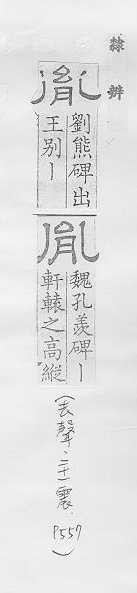 隸辨
胤
劉熊碑出
王別丨
胤
魏孔羡碑丨
軒轅之高縱
(去聲.二十一震.
P557)